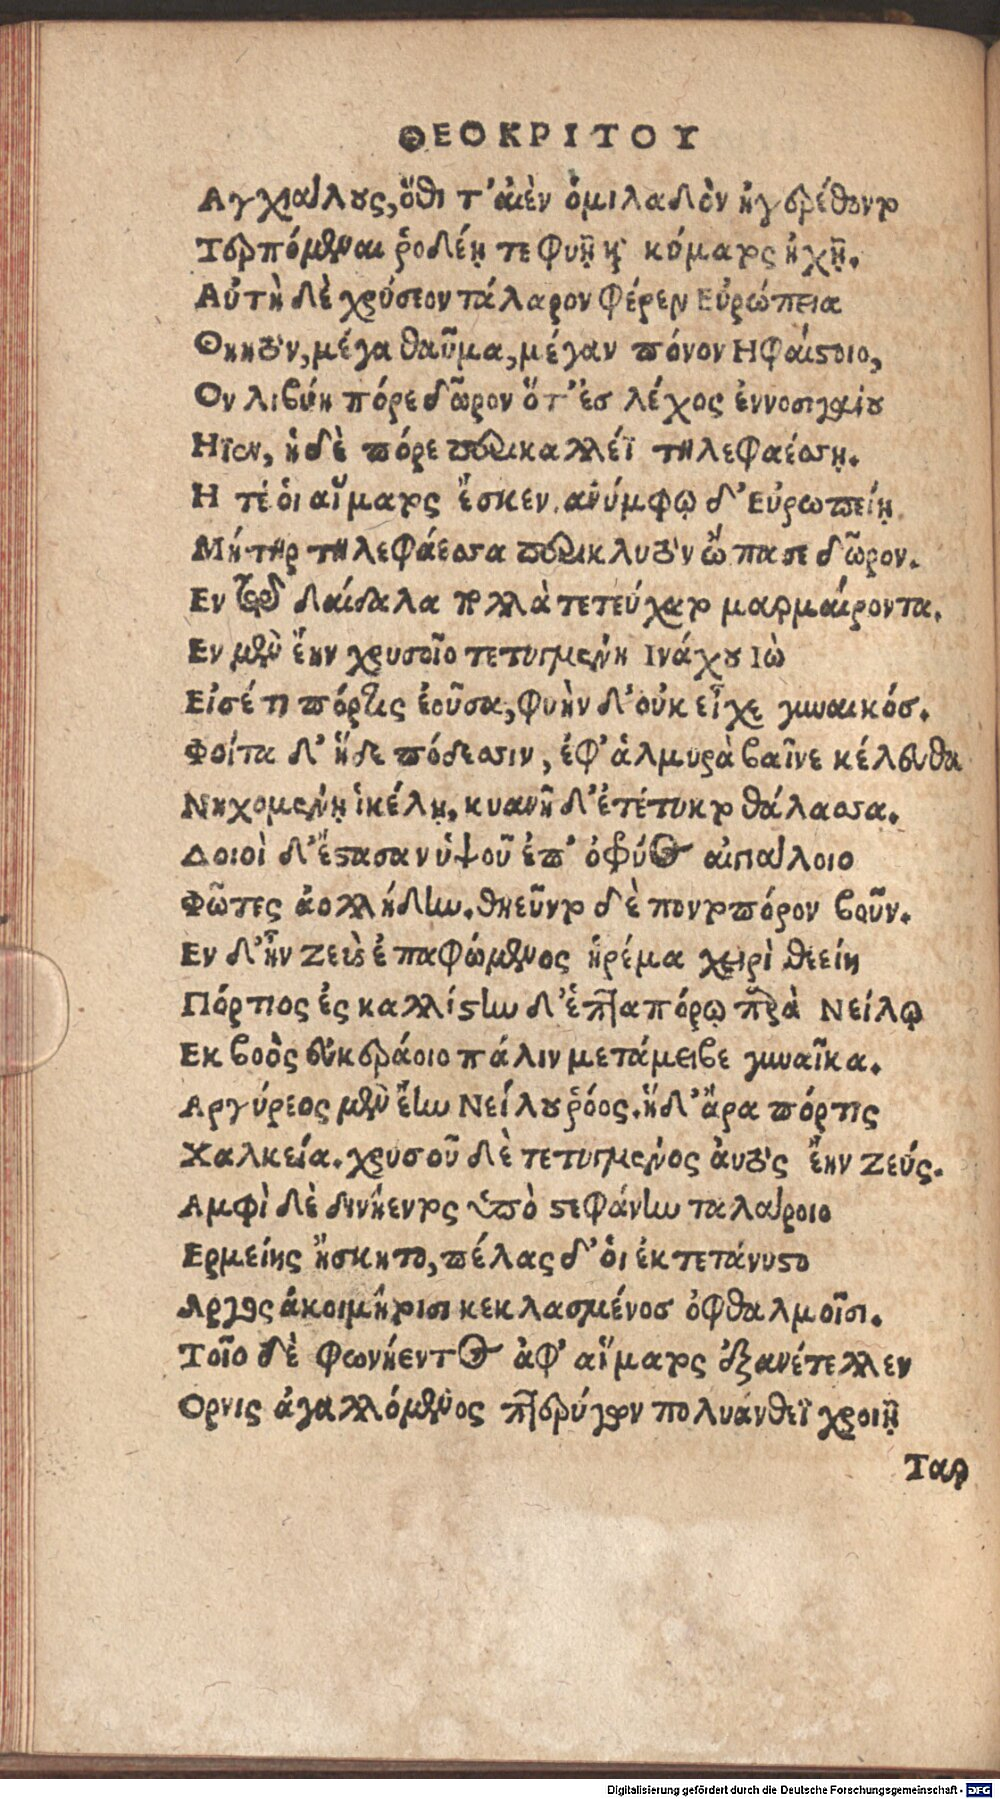 ΘΕΟΚΡΙΤΟΥ
Αγχιάλους, ὅθι τ' αἰὲν ὁμιλαδὸν ἠγερέθοντο
Τερπόμεναι ῥοδέῃ τε φυῇ καὶ κύματος ἠχῇ.
Αὐτὴ δὲ χρύσεον τάλαρον φέρεν Εὐρώπεια
Θηητὸν, μέγα θαῦμα, μέγαν πόνον Ηφαίστοιο,
Ον λιβύη πόρε δῶρον ὅτ' ἐσ λέχος ἐννοσιγαίου
Ηϊεν, ἡ δὲ πόρε περικαλλέϊ τηλεφαέσσῃ.
Η τέ ὁι αἵματος ἔσκεν. ἀνύμφῳ δ' Εὐρωπείῃ
Μήτηρ τηλεφάεσσα περικλυτὸν ὤπασε δῶρον.
Εν τῷ δαίδαλα πολλὰ τετεύχατο μαρμαίροντα.
Εν μὲν ἔην χρυσοῖο τετυγμένη Ινάχου Ιὼ
Εἰσέτι πόρτις ἐοῦσα, φυὴν δ' οὐκ εἶχε γυναικόσ.
Φοίτα δ' ἥδε πόδεσσιν, ἐφ' ἁλμυρὰ βαῖνε κέλευθα
Νηχομένῃ ἰκέλη, κυανῆ δ' ἐτέτυκτο θάλασσα.
Δοιοὶ δ' ἔστασαν ὑψοῦ ἐπ' ὀφρύος αἰγιαλοῖο
Φῶτες ἀολλήδην. θηεῦντο δὲ ποντοπόρον βοῦν.
Εν δ' ἦν Ζεὺς ἐπαφώμενος ἠρέμα χειρὶ θεείη
Πόρτιος ἐς καλλίστην δ' ἑπταπόρῳ παρὰ Νείλῳ
Εκ βοὸς εὐκεράοιο πάλιν μετάμειβε γυναῖκα.
Αργύρεος μὲν ἔην Νείλου ῥόος. ἡ δ' ἄρα πόρτις
Χαλκεία. χρυσοῦ δὲ τετυγμένος ἀυτὸς ἔην Ζεύς.
Αμφὶ δὲ δινήεντος ὑπὸ στεφάνην ταλάροιο
Ερμείης ἤσκητο, πέλας δ' ὁι ἐκτετάνυστο
Αργος ἀκοιμήτοισι κεκλασμένοσ ὀφθαλμοῖσι.
Τοῖο δὲ φωνήεντος ἀφ' αἵματος ἐξανέτελλεν
Ορνις ἀγαλλόμενος πτερύγων πολυανθέϊ χροιῇ
Ταρ
Digitalisierung gefördert durch die Deutsche Forschungsgemeinschaft - DFG